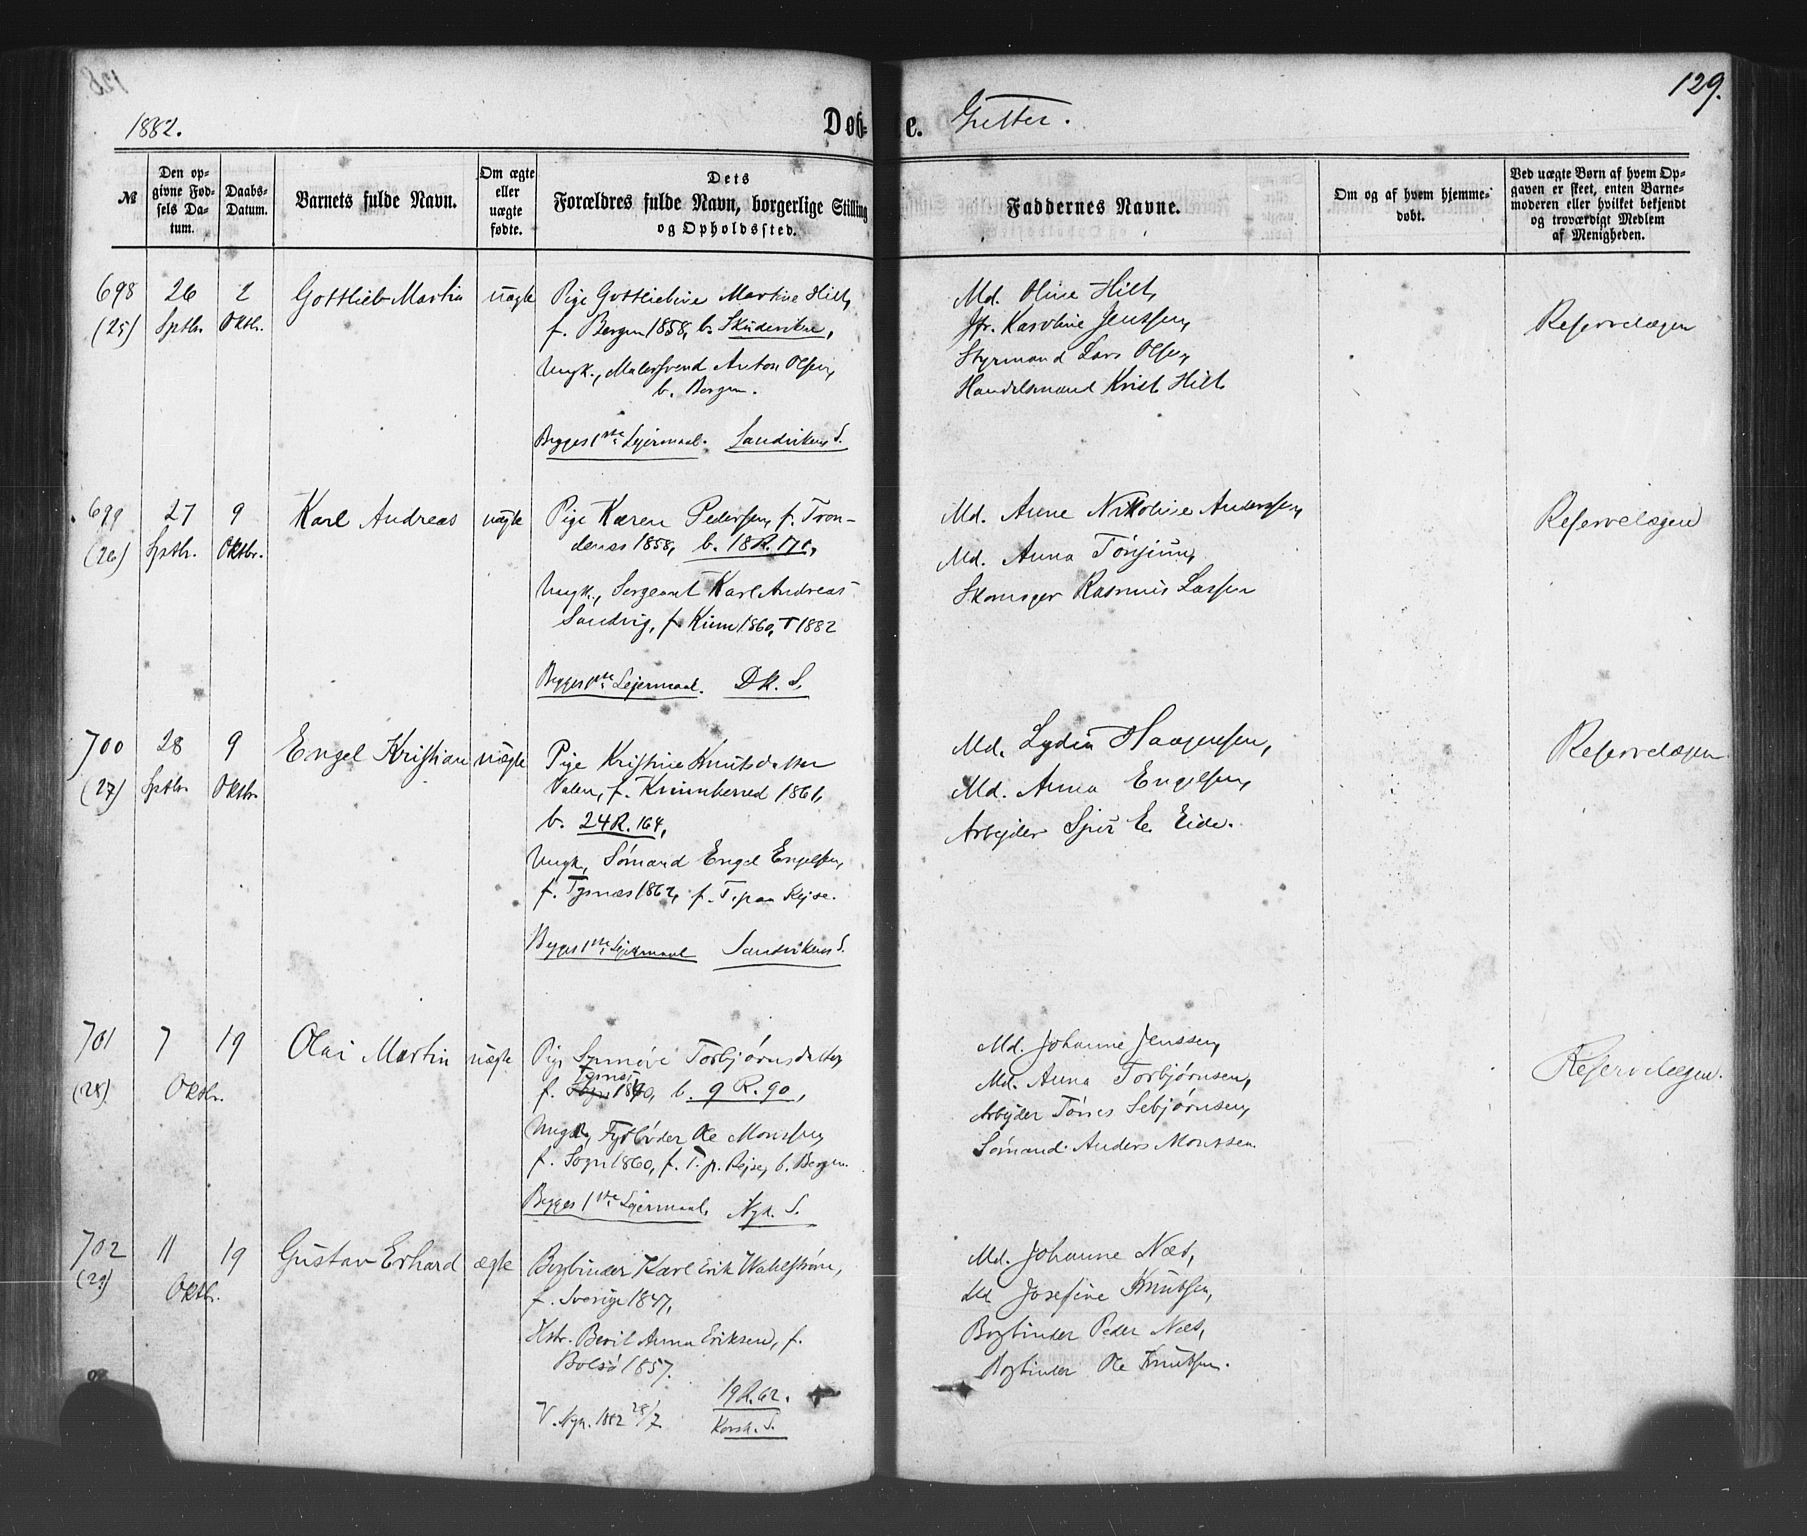 129.
1882.
Døb-
e.
Gutter.
№
Den op-
givne Fød-
sels Da-
tum.
Daabs-
Datum.
Barnets fulde Navn.
Om ægte
eller
uægte
fødte.
Dets
Forældres fulde Navn, borgerlige Stilling
og Opholdssted.
Faddernes Navne.
Om og af hvem hjemme-
døbt.
Ved uægte Børn af hvem Op-
gaven er skeet, enten Barne-
moderen eller hvilket bekjendt
og troværdigt Medlem
af Menigheden.
698
(25)
26
Sptbr.
2
Oktbr.
Gottlieb Martin
uægte
Pige Gottliebine Martine Hilt,
f. Bergen 1858, b. Skudeviken,
Ungk., Malersvend Anton Olsen,
b. Bergen.
Begges 1ste Lejermaal. Sandvikens S.
Md. Oline Hilt,
Jfr. Karoline Jenssen,
Styrmand Lars Olsen,
Handelsmand Krist. Hilt
Reservelægen
699
(26)
27
Sptbr.
9
Oktbr.
Karl Andreas
uægte
Pige Karen Pedersen, f. Tron-
denæs 1858, b. 18 R. 171,
Ungk., Sergeant Karl Andreas
Sandvig, f. Kinn 1860, † 1882
Begges 1ste Lejermaal. Dk. S.
Md. Anne Nikoline Anderssen,
Md. Anna Tønjum,
Skomager Rasmus Larsen
Reservelægen
700
(27)
28
Sptbr.
9
Oktbr.
Engel Kristian
uægte
Pige Kristine Knutsdatter
Valen, f. Kvinnherred 1861,
b. 24 R. 164,
Ungk, Sømand Engel Engelsen,
f. Tysnæs 1862, f. T. paa Rejse.
Begges 1ste Lejermaal Sandvikens S.
Md. Lydia Haagensen,
Md. Anna Engelsen,
Arbejder Sjur E. Eide.
Reservelægen
701
(28)
7
Oktbr.
19
Olai Martin
uægte
Pige Synnøve Torbjørnsdatter,
Tysnæs
f. Sogn 1860, b. 9 R. 90,
Ungk, Fyrbøder Ole Monssen,
f. Sogn 1860, f. T. p. Rejse, b. Bergen.
Begges 1ste Lejermaal. Nyk. S.
Md. Johanne Jenssen,
Md. Anna Torbjørnsen,
Arbejder Tønnes Sebjørnsen,
Sømand Anders Monssen
Reservelægen.
702
(29)
11
Oktbr.
19
Gustav Erhard
ægte
Bogbinder Karl Erik Wahlstrøm,
f. Sverige 1847,
Hstr. Beril Anna Eriksen, f.
Bolsø 1857.
V. Nyk. 1882 28/7
19 R. 62.
Korsk. S.
Md. Johanne Næs,
Md Josefine Knutsen,
Bogbinder Peder Næs,
Bogbinder Ole Knutsen.